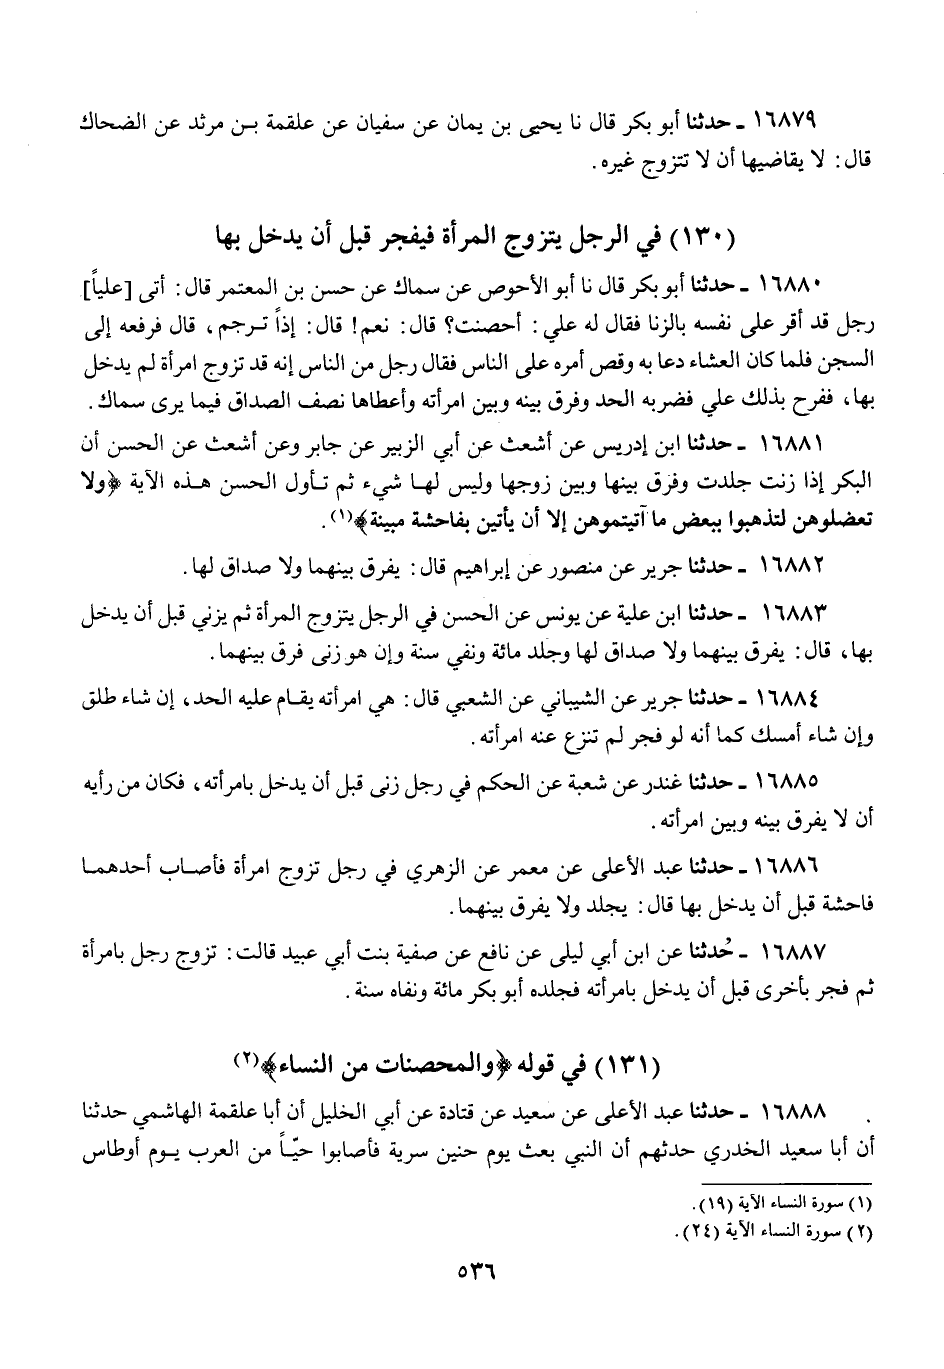 ١٦٨٧٩ ـ حدثنا أبو بكر قال نا يحيى بن يمان عن سفيان عن علقمة بـن مرثد عن الضحاك
قال: لا يقاضيها أن لا تتزوج غيره.
(١٣٠) في الرجل يتزوج المرأة فيفجر قبل أن يدخل بها
١٦٨٨٠ ـ حدثنا أبو بكر قال نا أبو الأحوص عن سماك عن حسن بن المعتمر قال: أتى [علياً]
رجل قد أقر على نفسه بالزنا فقال له علي: أحصنت؟ قال: نعم! قال: إذاً ترجم، قال فرفعه إلى
السجن فلما كان العشاء دعا به وقص أمره على الناس فقال رجل من الناس إنه قد تزوج امرأة لم يدخل
بها، ففرح بذلك علي فضربه الحد وفرق بينه وبين امرأته وأعطاها نصف الصداق فيما يرى سماك.
١٦٨٨١ ـ حدثنا ابن إدريس عن أشعث عن أبي الزبير عن جابر وعن أشعث عن الحسن أن
البكر إذا زنت جلدت وفرق بينها وبين زوجها وليس لهـا شيء ثم تـأول الحسن هـذه الآية ﴿ولا
تعضلوهن لتذهبوا ببعض ما آتيتموهن إلا أن يأتين بفاحشة مبينة﴾(١).
١٦٨٨٢ ـ حدثنا جرير عن منصور عن إبراهيم قال: يفرق بينهما ولا صداق لها.
١٦٨٨٣ ـ حدثنا ابن علية عن يونس عن الحسن في الرجل يتزوج المرأة ثم يزني قبل أن يدخل
بها، قال: يفرق بينهما ولا صداق لها وجلد مائة ونفي سنة وإن هو زنى فرق بينهما.
١٦٨٨٤ ـ حدثنا جرير عن الشيباني عن الشعبي قال: هي امرأته يقـام عليه الحد، إن شاء طلق
وإن شاء أمسك كما أنه لو فجر لم تنزع عنه امرأته.
١٦٨٨٥ ـ حدثنا غندر عن شعبة عن الحكم في رجل زنى قبل أن يدخل بامرأته، فكان من رأيه
أن لا يفرق بينه وبين امرأته.
١٦٨٨٦ ـ حدثنا عبد الأعلى عن معمر عن الزهري في رجل تزوج امرأة فأصـاب أحدهمـا
فاحشة قبل أن يدخل بها قال: يجلد ولا يفرق بينهما.
١٦٨٨٧ ـ حُدثنا عن ابن أبي ليلى عن نافع عن صفية بنت أبي عبيد قالت: تزوج رجل بامرأة
ثم فجر بأخرى قبل أن يدخل بامرأته فجلده أبو بكر مائة ونفاه سنة.
(١٣١) في قوله ﴿والمحصنات من النساء﴾(٢)
١٦٨٨٨ ـ حدثنا عبد الأعلى عن سعيد عن قتادة عن أبي الخليل أن أبا علقمة الهاشمي حدثنا
أن أبا سعيد الخدري حدثهم أن النبي بعث يوم حنين سرية فأصابوا حيّـاً من العرب يـوم أوطاس
(١) سورة النساء الآية (١٩).
(٢) سورة النساء الآية (٢٤).
٥٣٦